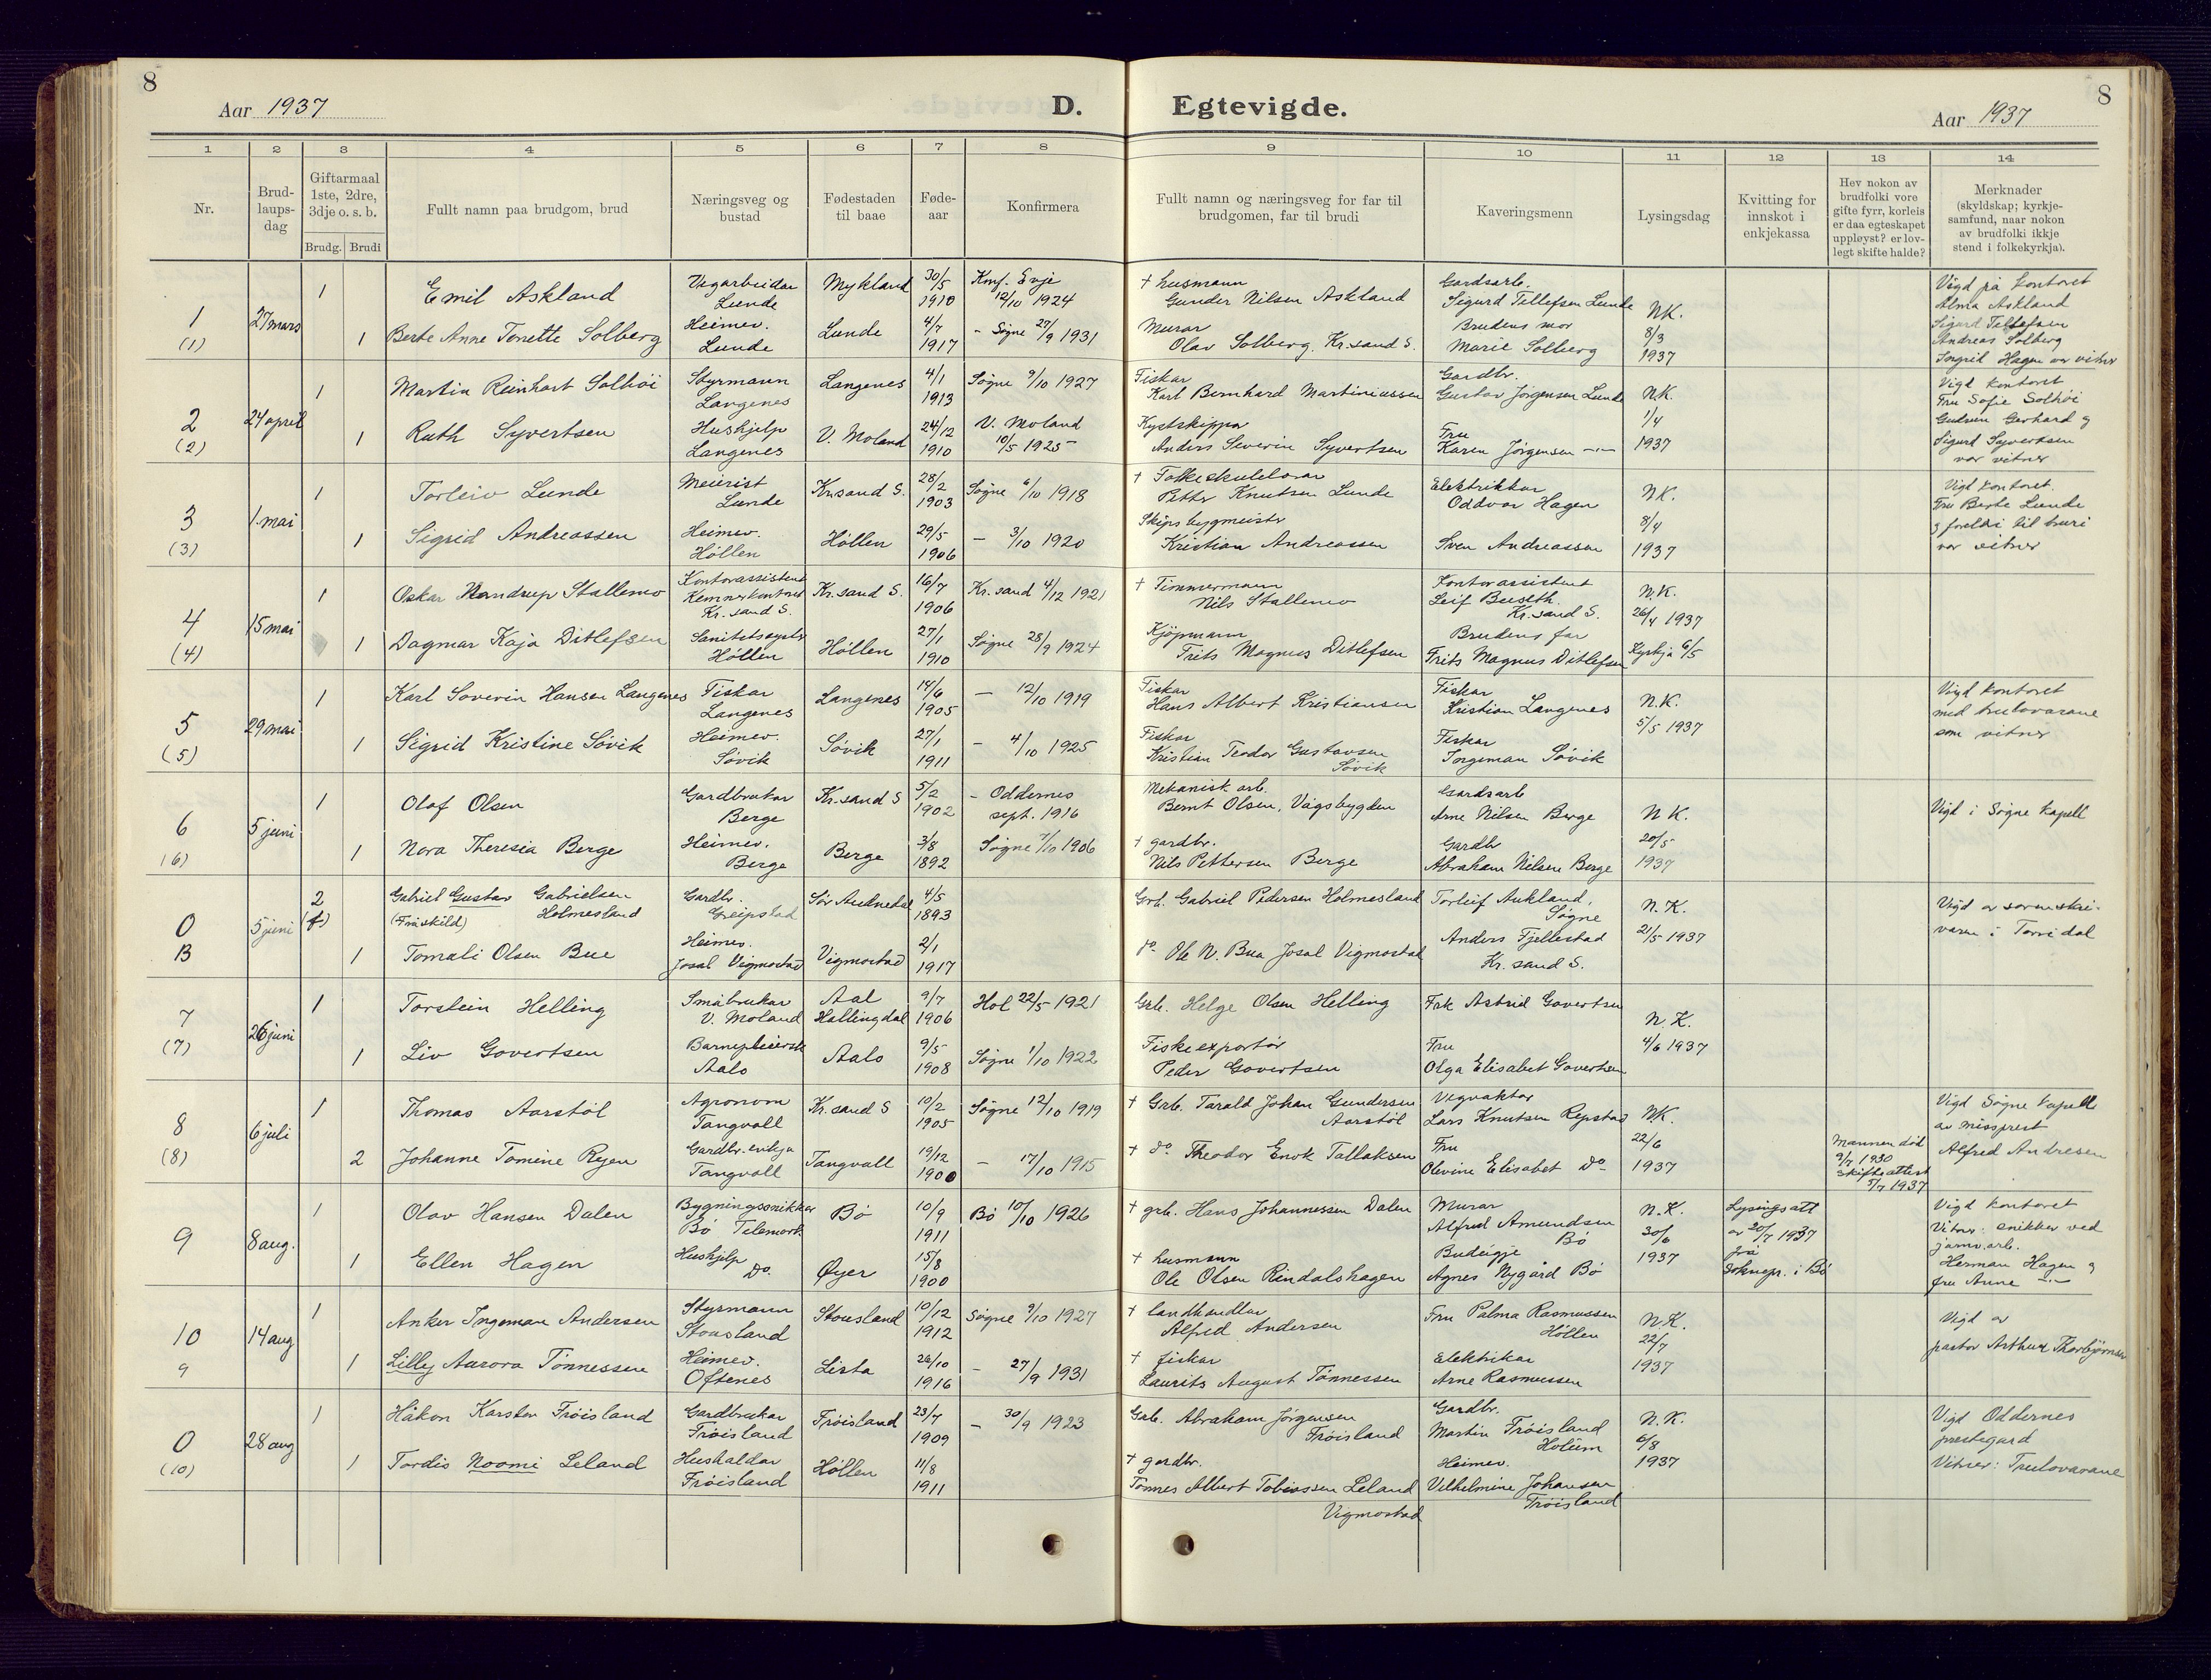 8
Aar 1937
D.
Egtevigde.
Aar 1937
8
1 2 3 4 5 6 7 8 9 10 11 12 13 14
Nr.
Brud-
laups-
dag
Giftarmaal
1ste, 2dre,
3dje o. s. b.
Brudg. Brudi
Fullt namn paa brudgom, brud
Næringsveg og
bustad
Fødestaden
til baae
Føde-
aar
Konfirmera
Fullt namn og næringsveg for far til
brudgomen, far til brudi
Kaveringsmenn
Lysingsdag
Kvitting for
innskot i
enkjekassa
Hev nokon av
brudfolki vore
gifte fyrr, korleis
er daa egteskapet
uppløyst? er lov-
legt skifte halde?
Merknader
(skyldskap; kyrkje-
samfund, naar nokon
av brudfolki ikkje
stend i folkekyrkja).
1
(1)
27 mars
1
Emil Askland
Vegarbeidar
Lunde
Mykland
30/5
1910
Konf. Evje
12/10 1924
+ husmann
Gunder Nilsen Askland
Gardsarb.
Sigurd Tellefsen Lunde
N.K.
8/3
1937
Vigd på kontoret
Alma Askland
Sigurd Tellefsen
Andreas Solberg
Ingrid Hagen var vitner
1
Berte Anne Tonette Solberg
Heimev.
Lunde
Lunde
4/7
1917
- Søgne 27/9 1931
Murar
Olav Solberg, Kr.sand S.
Brudens mor
Marie Solberg
2
(2)
24 april
1
Martin Reinhart Solhöi
Styrmann
Langenes
Langenes
4/1
1913
Søgne 9/10 1927
Fiskar
Karl Bernhard Martiniussen
Gardbr.
Gustav Jörgensen Lunde
N.K.
1/4
1937
Vigd kontoret
Fru Sofie Solhöi
Gudrun Gerhard og
Sigurd Syvertsen
var vitner
1
Ruth Syvertsen
Hushjelp
Langenes
V. Moland
24/12
1910
V. Moland
10/5 1925
Kystskippar
Anders Severin Syvertsen
Fru
Karen Jörgensen -"-
3
(3)
1. mai
1
Torleiv Lunde
Meierist
Lunde
Kr.sand S.
28/2
1903
Søgne 6/10 1918
+ Folkeskulelærar
Petter Knutsen Lunde
Elektrikkar
Oddvar Hagen
N.K.
8/4
1937
Vigd kontoret.
Fru Berte Lunde
og foreldri til bruri
var vitner
1
Sigrid Andreassen
Heimev.
Höllen
Höllen
29/5
1906
- 3/10 1920
Skipsbygmeistr
Kristian Andreassen
Sven Andreassen
4
(4)
15 mai
1
Oskar Stallemo
Kontorassistent
Kemnerkontoret
Kr.sand S.
Kr.sand S.
16/7
1906
Kr.sand 4/12 1921
+ Timmermann
Nils Stallemo
Kontorassistent
Leif Buseth.
Kr.sand S.
N.K.
26/4 1937
Kyrkja 6/5
1
Dagmar Kaja Ditlefsen
Sanitetssystr
Höllen
Höllen
27/1
1910
Søgne 28/9 1924
Kjöpmann
Frits Magnus Ditlefsen
Brudens far
Frits Magnus Ditlefsen
5
(5)
29 mai
1
Karl Soverin Hansen Langenes
Fiskar
Langenes
Langenes
14/6
1905
- 12/10 1919
Fiskar
Hans Albert Kristiansen
Fiskar
Kristian Langenes
N.K.
5/5 1937
Vigd kontoret
med trulovarane
som vitner
1
Sigrid Kristine Sövik
Heimev.
Sövik
Sövik
27/1
1911
- 4/10 1925
Fiskar
Kristian Teodor Gustavsen
Sövik
Fiskar
Ingeman Sövik
6
(6)
5 juni
1
Olaf Olsen
Gardbrukar
Berge
Kr.sand S
5/2
1902
- Oddernes
sept. 1916
Mekanisk arb.
Bernt Olsen, Vågsbygden
Gardsarb
Arne Nilsen Berge
N K.
20/5
1937
Vigd i Søgne kapell
1
Nora Theresia Berge
Heimev.
Berge
Berge
3/8
1892
Søgne 7/10 1906
+ gardbr.
Nils Pettersen Berge
Gardbr
Abraham Nilsen Berge
0
B
5 juni
2
Gabriel Gustav Gabrielsen
(Fråskild) Holmesland
Gardbr.
Greipstad
Sör Audnedal
4/5
1893
Grb. Gabriel Pedersen Holmesland
Torleif Aukland,
Søgne
N.K.
21/5 1937
Vigd av sorenskri-
varen i Torridal
1
Tomali Olsen Bue
Heimev.
Josal Vigmostad
Vigmostad
2/1
1917
do Ole N. Bua Josal Vigmostad
Anders Fjellestad
Kr.sand S.
7
(7)
26 juni
1
Torstein Helling
Småbrukar
V. Moland
Aal
Hallingdal
9/7
1906
Hol 22/5 1921
Grb. Helge Olsen Helling
Frk Astrid Govertsen
N.K.
4/6 1937
1
Liv Govertsen
Barnepleierske
Aalo
Aalo
9/5
1908
Søgne 1/10 1922
Fiskeexportör
Peder Govertsen
Fru
Olga Elisabet Govertsen
8
(8)
6 juli
1
Thomas Aarstöl
Agronom
Tangvall
Kr.sand S
10/2
1905
Søgne 12/10 1919
+ Grb. Tarald Johan Gundersen
Aarstöl
Vegvaktar
Lars Knutsen Repstad
N.K.
22/6
1937
Vigd Søgne kapell
av missprest
Alfred Andresen
2
Johanne Tomine Rejen
Gardbr. enkja
Tangvall
Tangvall
19/12
1900
- 17/10 1915
+ do Theodor Enok Tallaksen
Fru
Olevine Elisabet Do
Mannen död
9/7 1930
Skifteattest
5/7 1937
9
8 aug.
1
Olav Hansen Dalen
Bygningssnikkar
Bö Telemark
Bö
10/9
1911
Bö 10/10 1926
+ grb. Hans Johannessen Dalen
Murar
Alfred Amundsen
Bö
N.K.
30/6
1937
Lysingsatt
av 20/7 1937
frå
Soknepr. i Bö
Vigd kontoret
Vitner: snikker ved
jarnv.arb.
Herman Hagen og
fru Anne -"-
1
Ellen Hagen
Hushjelp
Do.
Øyer
15/8
1900
+ husmann
Ole Olsen Rindalshagen
Budeigje
Agnes Nygård Bö
10
9
14 aug
1
Anker Ingeman Andersen
Styrmann
Stousland
Stousland
10/12
1912
Søgne 9/10 1927
+ landhandlar
Alfred Andersen
Fru Palma Rasmussen
Höllen
N.K.
22/7
1937
Vigd av
pastor Arthur Thorbjørnsen
1
Lilly Aurora Tönnessen
Heimev.
Oftenes
Lista
26/10
1916
- 27/9 1931
+ fiskar
Laurits August Tönnessen
Elektrikar
Arne Rasmussen
0
(10)
28 aug
1
Håkon Karsten Tröisland
Gardbrukar
Tröisland
Tröisland
23/7
1909
- 30/9 1923
Grb. Abraham Jörgensen
Tröisland
Gardbr.
Martin Tröisland
Holum
N.K.
6/8
1937
Vigd Oddernes
prestegard
Vitner: Trulovarane
1
Tordis Noomi Leland
Hushaldar
Tröisland
Höllen
11/8
1911
+ gardbr.
Tönnes Albert Tobiassen Leland
Vigmostad
Heimev.
Vilhelmine Johansen
Tröisland